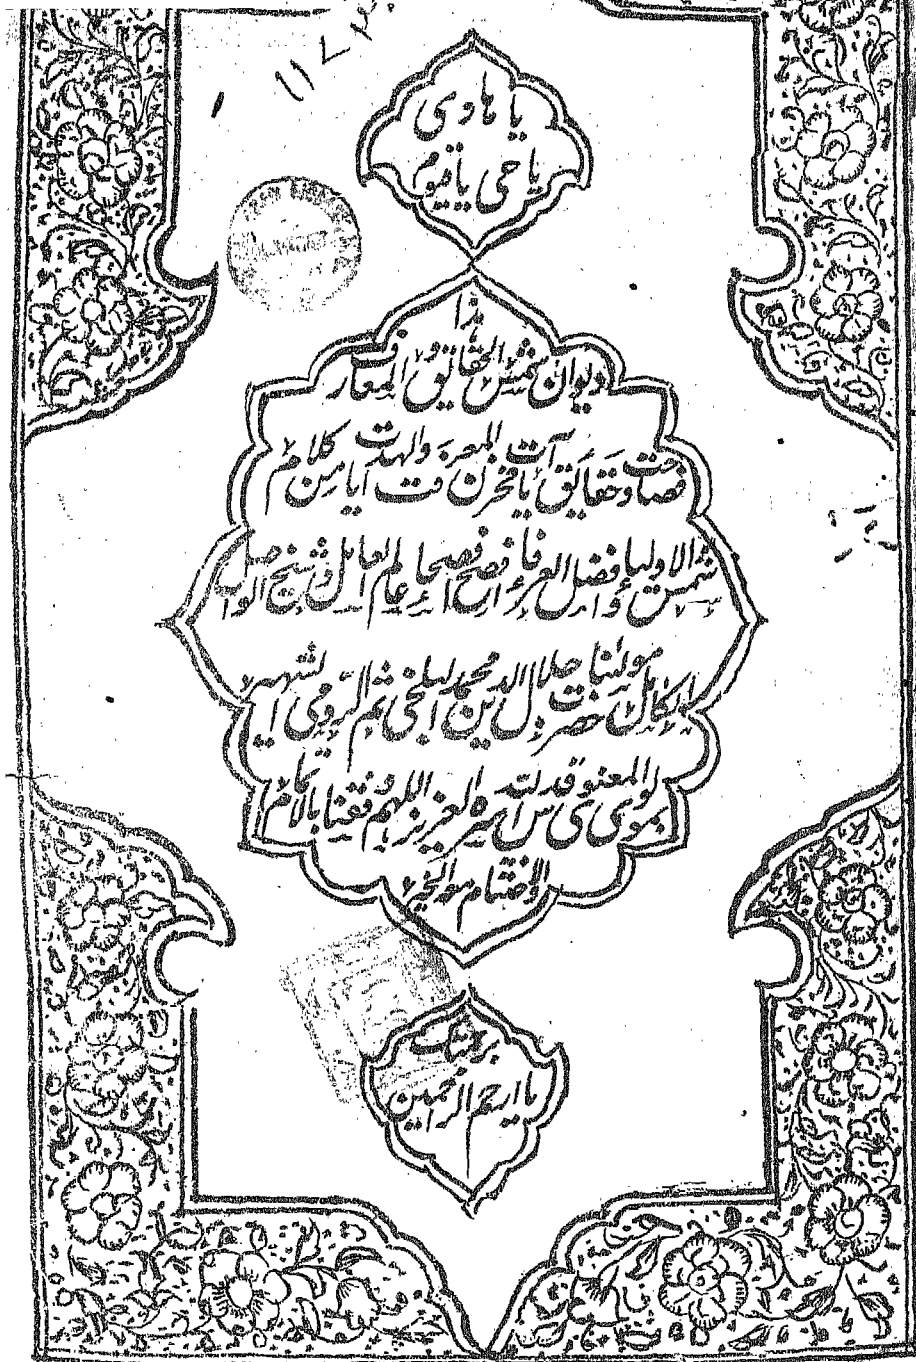 ۱۱۷
یا هادی
یا حی یا قیوم
هذا
دیوان شمس الحقایق و المعارف
فصاحت و حقایق آیات مخزن المعرفت و الهدایت من کلام
شمس الاولیاء و افضل العرفاء افصح فصحاء عالم العامل و شیخ الواصل
الکامل حضرت مولینا جلال الدین محمد البلخی ثم الرومی الشهیر
بمولوی المعنوی قدس الله سره العزیز اللهم وفقنا بالاتمام
و الاختتام مع الخیر
برحمتک
یا ارحم الراحمین